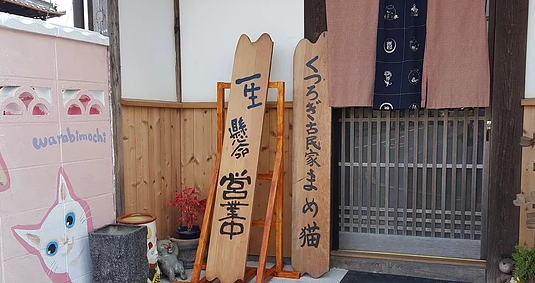 warabimochi
一生
懸命
営業中
くつろぎ古民家まめ猫